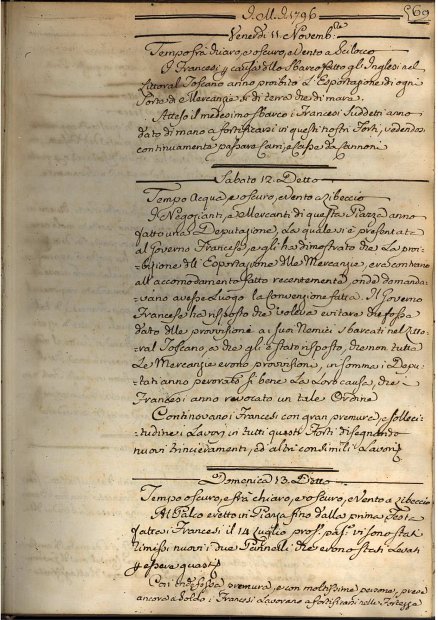 I. M. I. 1796
569
Venerdi 11. Novemb.
Tempo frà chiaro, e oscuro, e Vento a Scilocco
I Francesi p causa dello Sbarco fatto gl'Inglesi nel
Littoral Toscano anno proibito L'Esportazione di ogni
Sorta di Mercanzie sì di terra che di mare.
Atteso il medesimo sbarco i Francesi suddetti anno
dato di mano a fortificarsi in questi nostri Forti, vedendo
continuamente passare Cami, e Casse da Cannoni
Sabato 12. Detto
Tempo Acqua, e oscuro, e Vento a Libeccio
I Negozianti, e Mercanti di questa Piazza anno
fatto una Deputazione, La quale si è presentata
al Governo Francese, e gli ha dimostrato che La proi-
bizione dell' Esportazione delle Mercanzie, era contrario
all' accomodamento fatto recentemente, onde domanda-
vano avesse Luogo la Convenzione fatta. Il Governo
Francese ha risposto che voleva evitare che fossa
dato delle provvisione a i suoi Nemici sbarcati nel Litto-
ral Toscano, a che gli è stato risposto, che non tutta
Le Mercanzie erono provvisioni, in somma i Depu-
tati anno perorato sì bene La Loro causa, che i
Francesi anno revocato un tale Ordine
Continovano i Francesi con gran premura, e solleci-
tudine i Lavori in tutti questi Forti disegnando
nuovi trincieramenti, ed altri consimili Lavori
Domenica 13. Detto
Tempo oscuro, e frà chiaro, e oscuro, e Vento a Libeccio
Al Palco eretto in Piazza fino dalla prima Festa
fatta i Francesi il 14 Luglio pross. pass. vi sono stati
rimessi nuovi i due Pennelli che erono stati Levati
p essere guasti
Con indefessa premura, e con moltissime persone, prese
ancora a Soldo, i Francesi Lavorano a fortificarsi nella Fortezza